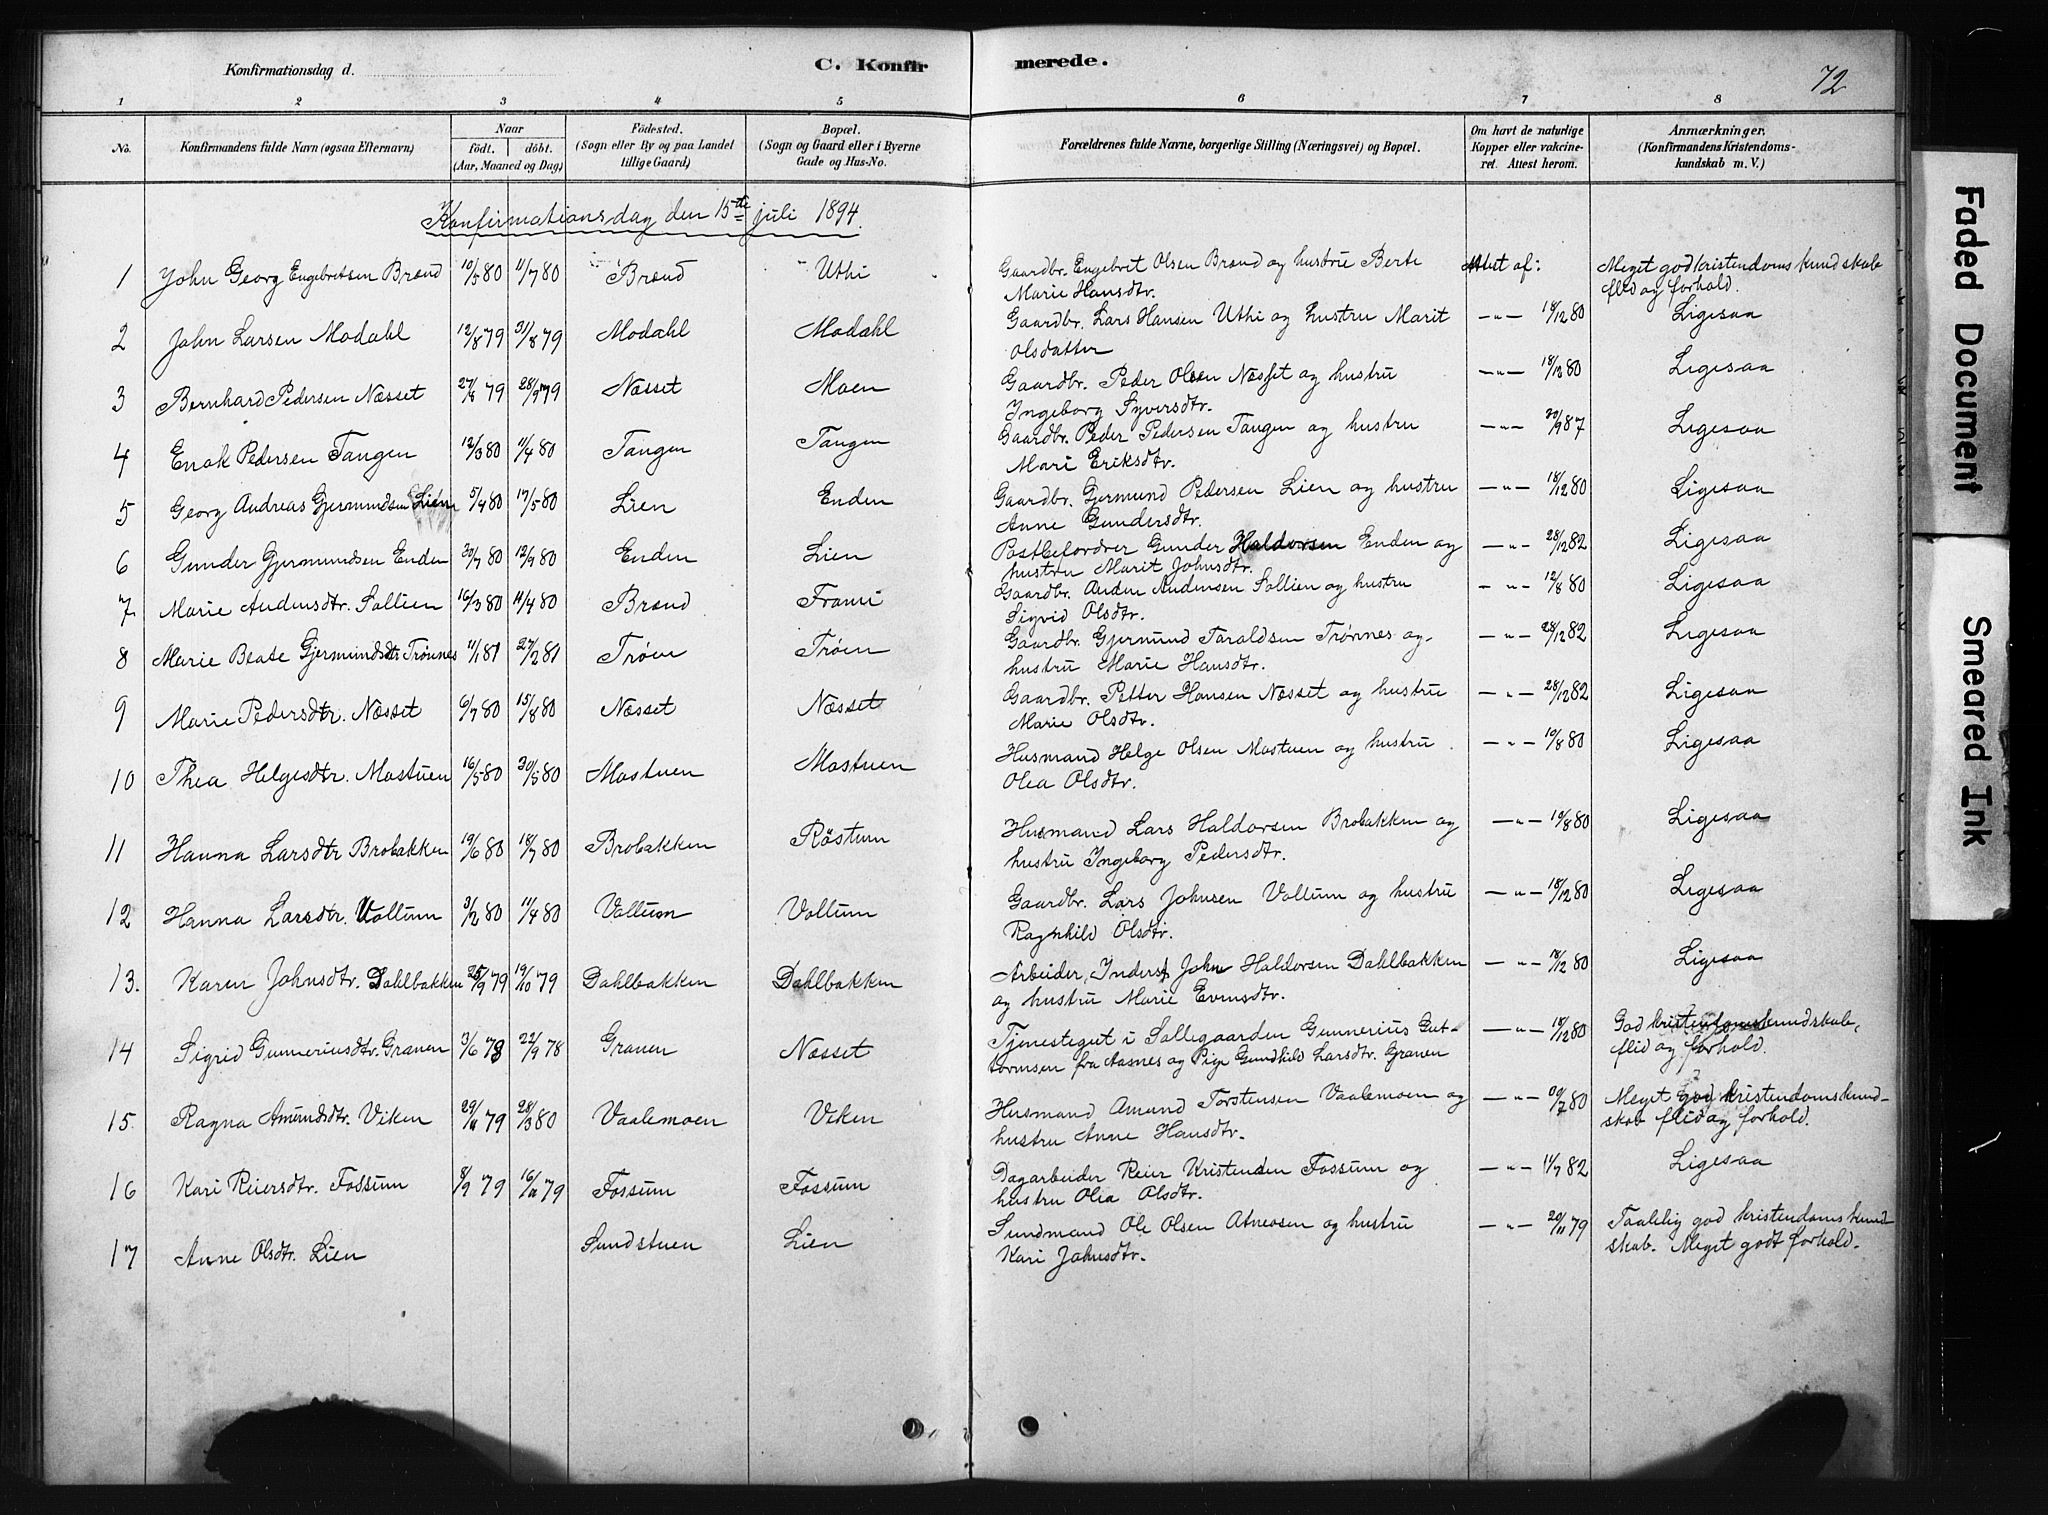 Konfirmationsdag d.
C. Konfirmerede.
72
1 2 3 4 5 6 7 8
No.
Konfirmandens fulde Navn (ogsaa Efternavn)
Naar
födt. döbt.
(Aar, Maaned og Dag)
Födested.
(Sogn eller By og paa Landet
tillige Gaard)
Bopæl.
(Sogn og Gaard eller i Byerne
Gade og Hus-No.
Forældrenes fulde Navne, borgerlige Stilling (Næringsvei) og Bopæl.
Om havt de naturlige
Kopper eller vakcine-
ret. Attest herom.
Anmærkninger.
(Konfirmandens Kristendoms-
kundskab m. V.)
Konfirmationsdag den 15de juli 1894.
1 John Georg Engebretsen Brænd 10/5 80 11/7 80 Brænd Uthi Gaardbr. Engebrit Olsen Brænd og hustru Berte Attst af: Meget god kristendomskundskab
Marie Hansdtr. flid og forhold.
2 John Larsen Modahl 12/8 79 31/8 79 Modahl Modahl Gaardbr. Lars Hansen Uthi og hustru Marit — " — 18/12 80 Ligesaa
Olsdatter
3 Bernhard Pedersen Næsset 27/8 79 28/9 79 Næsset Moen Gaardbr. Peder Olsen Næsset og hustru — " — 18/12 80 Ligesaa
Ingeborg Syversdtr.
4 Enok Pedersen Tangen 12/3 80 11/4 80 Tangen Tangen Gaardbr. Peder Pedersen Tangen og hustru — " — 30/9 87 Ligesaa
Mari Eriksdtr.
5 Georg Andreas Gjermundsen Lien 5/4 80 17/5 80 Lien Enden Gaardbr. Gjermund Pedersen Lien og hustru — " — 18/12 80 Ligesaa
Anne Gundersdtr.
6 Gunder Gjermundsen Enden 30/7 80 12/9 80 Enden Lien Postbefordrer Gunder Haldorsen Enden og — " — 28/12 82 Ligesaa
hustru Marit Johnsdtr.
7 Marie Andersdtr. Sollien 16/3 80 11/4 80 Brænd Trœni Gaardbr. Anden Andersen Sollien og hustru — " — 12/8 80 Ligesaa
Sigrid Olsdtr.
8 Marie Beate Gjermundsdtr Trønnes 11/1 81 27/2 81 Trøen Trøen Gaardbr. Gjermund Taraldsen Trønnes og — " — 28/12 82 Ligesaa
hustru Marie Hansdtr.
9 Marie Pedersdtr. Næsset 6/7 80 15/8 80 Næsset Næsset Gaardbr. Petter Hansen Næsset og hustru — " — 28/12 82 Ligesaa
Marie Olsdtr.
10 Thea Helgesdtr. Mostuen 16/5 80 30/5 80 Mostuen Mostuen Husmand Helge Olsen Mostuen og hustru — " — 10/8 80 Ligesaa
Olea Olsdtr.
11 Hanna Larsdtr Brobakken 19/6 80 18/7 80 Brobakken Röstum Husmand Lars Haldorsen Brobakken og — " — 10/8 80 Ligesaa
hustru Ingeborg Pedersdtr.
12 Hanna Larsdtr. Vollum 3/2 80 11/4 80 Vollum Vollum Gaardbr. Lars Johnsen Vollum og hustru — " — 18/12 80 Ligesaa
Ragnhild Olsdtr.
13. Karen Johnsdtr. Dahlbakken 25/9 79 19/10 79 Dahlbakken Dahlbakken Arbeider, Inderst John Haldorsen Dahlbakken — " — 18/12 80 Ligesaa
og hustru Marie Evensdtr.
14 Sigrid Gunneriusdtr. Granen 3/6 78 22/9 78 Granen Næsset Tjenestegut i Sollegaarden Gunnerius Gut- — " — 18/12 80 God kristendomskundskab,
tormsen fra Aasnes og Pige Gundhild Larsdtr. Granen flid og forhold.
15. Ragna Amundsdtr. Viken 29/11 79 28/3 80 Vaalemoen Viken Husmand Amund Torstensen Vaalemoen og — " — 30/7 80 Meget god kristendomskund-
hustru Anne Hansdtr. skab flid og forhold.
16 Kari Reiersdtr. Fossum 8/9 79 16/11 79 Fossum Fossum Dagarbeider Reier Kristensen Fossum og — " — 11/7 82 Ligesaa
hustru Olea Olsdtr.
17 Anne Olsdtr. Lien Sundstuen Lien Sundmand Ole Olsen Atneosen og hustru — " — 20/11 79 Taalelig god kristendomskund
Kari Johnsdtr. skab. Meget godt forhold.
Faded Document
Smeared Ink